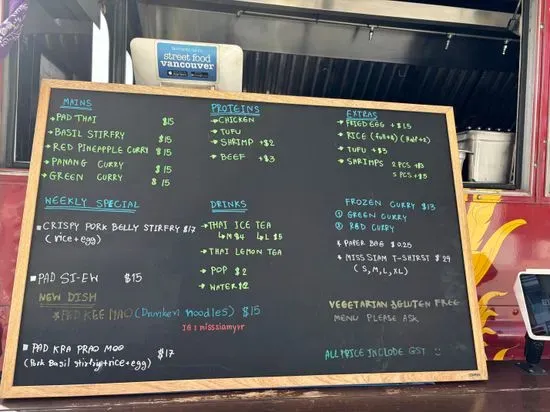 street food
vancouver
MAINS
→ PAD THAI $15
→ BASIL STIRFRY $15
→ RED PINEAPPLE CURRY $15
→ PANANG CURRY $15
→ GREEN CURRY $15
WEEKLY SPECIAL
▪ CRISPY PORK BELLY STIRFRY $17
(rice+egg)
▪ PAD SI-EW $15
NEW DISH
★ PAD KEE MAO (Drunken noodles) $15
IG : misssiamyvr
▪ PAD KRA PRAO MOO $17
(Pork Basil stirfry+rice+egg)
PROTEINS
→ CHICKEN
→ TUFU
→ SHRIMP +$2
→ BEEF +$3
DRINKS
→ THAI ICE TEA
↳ M $4 ↳ L $5
→ THAI LEMON TEA
→ POP $2
→ WATER $2
EXTRAS
→ FRIED EGG + $1.5
→ RICE (full+4) (Half+2)
→ TUFU + $3
→ SHRIMPS 2 PCS +$3
5 PCS + $5
FROZEN CURRY $13
① GREEN CURRY
② RED CURRY
* PAPER BAG $0.25
* MISS SIAM T-SHIRST $29
(S, M, L, XL)
VEGETARIAN & GLUTEN FREE
MENU PLEASE ASK
ALL PRICE INCLUDE GST